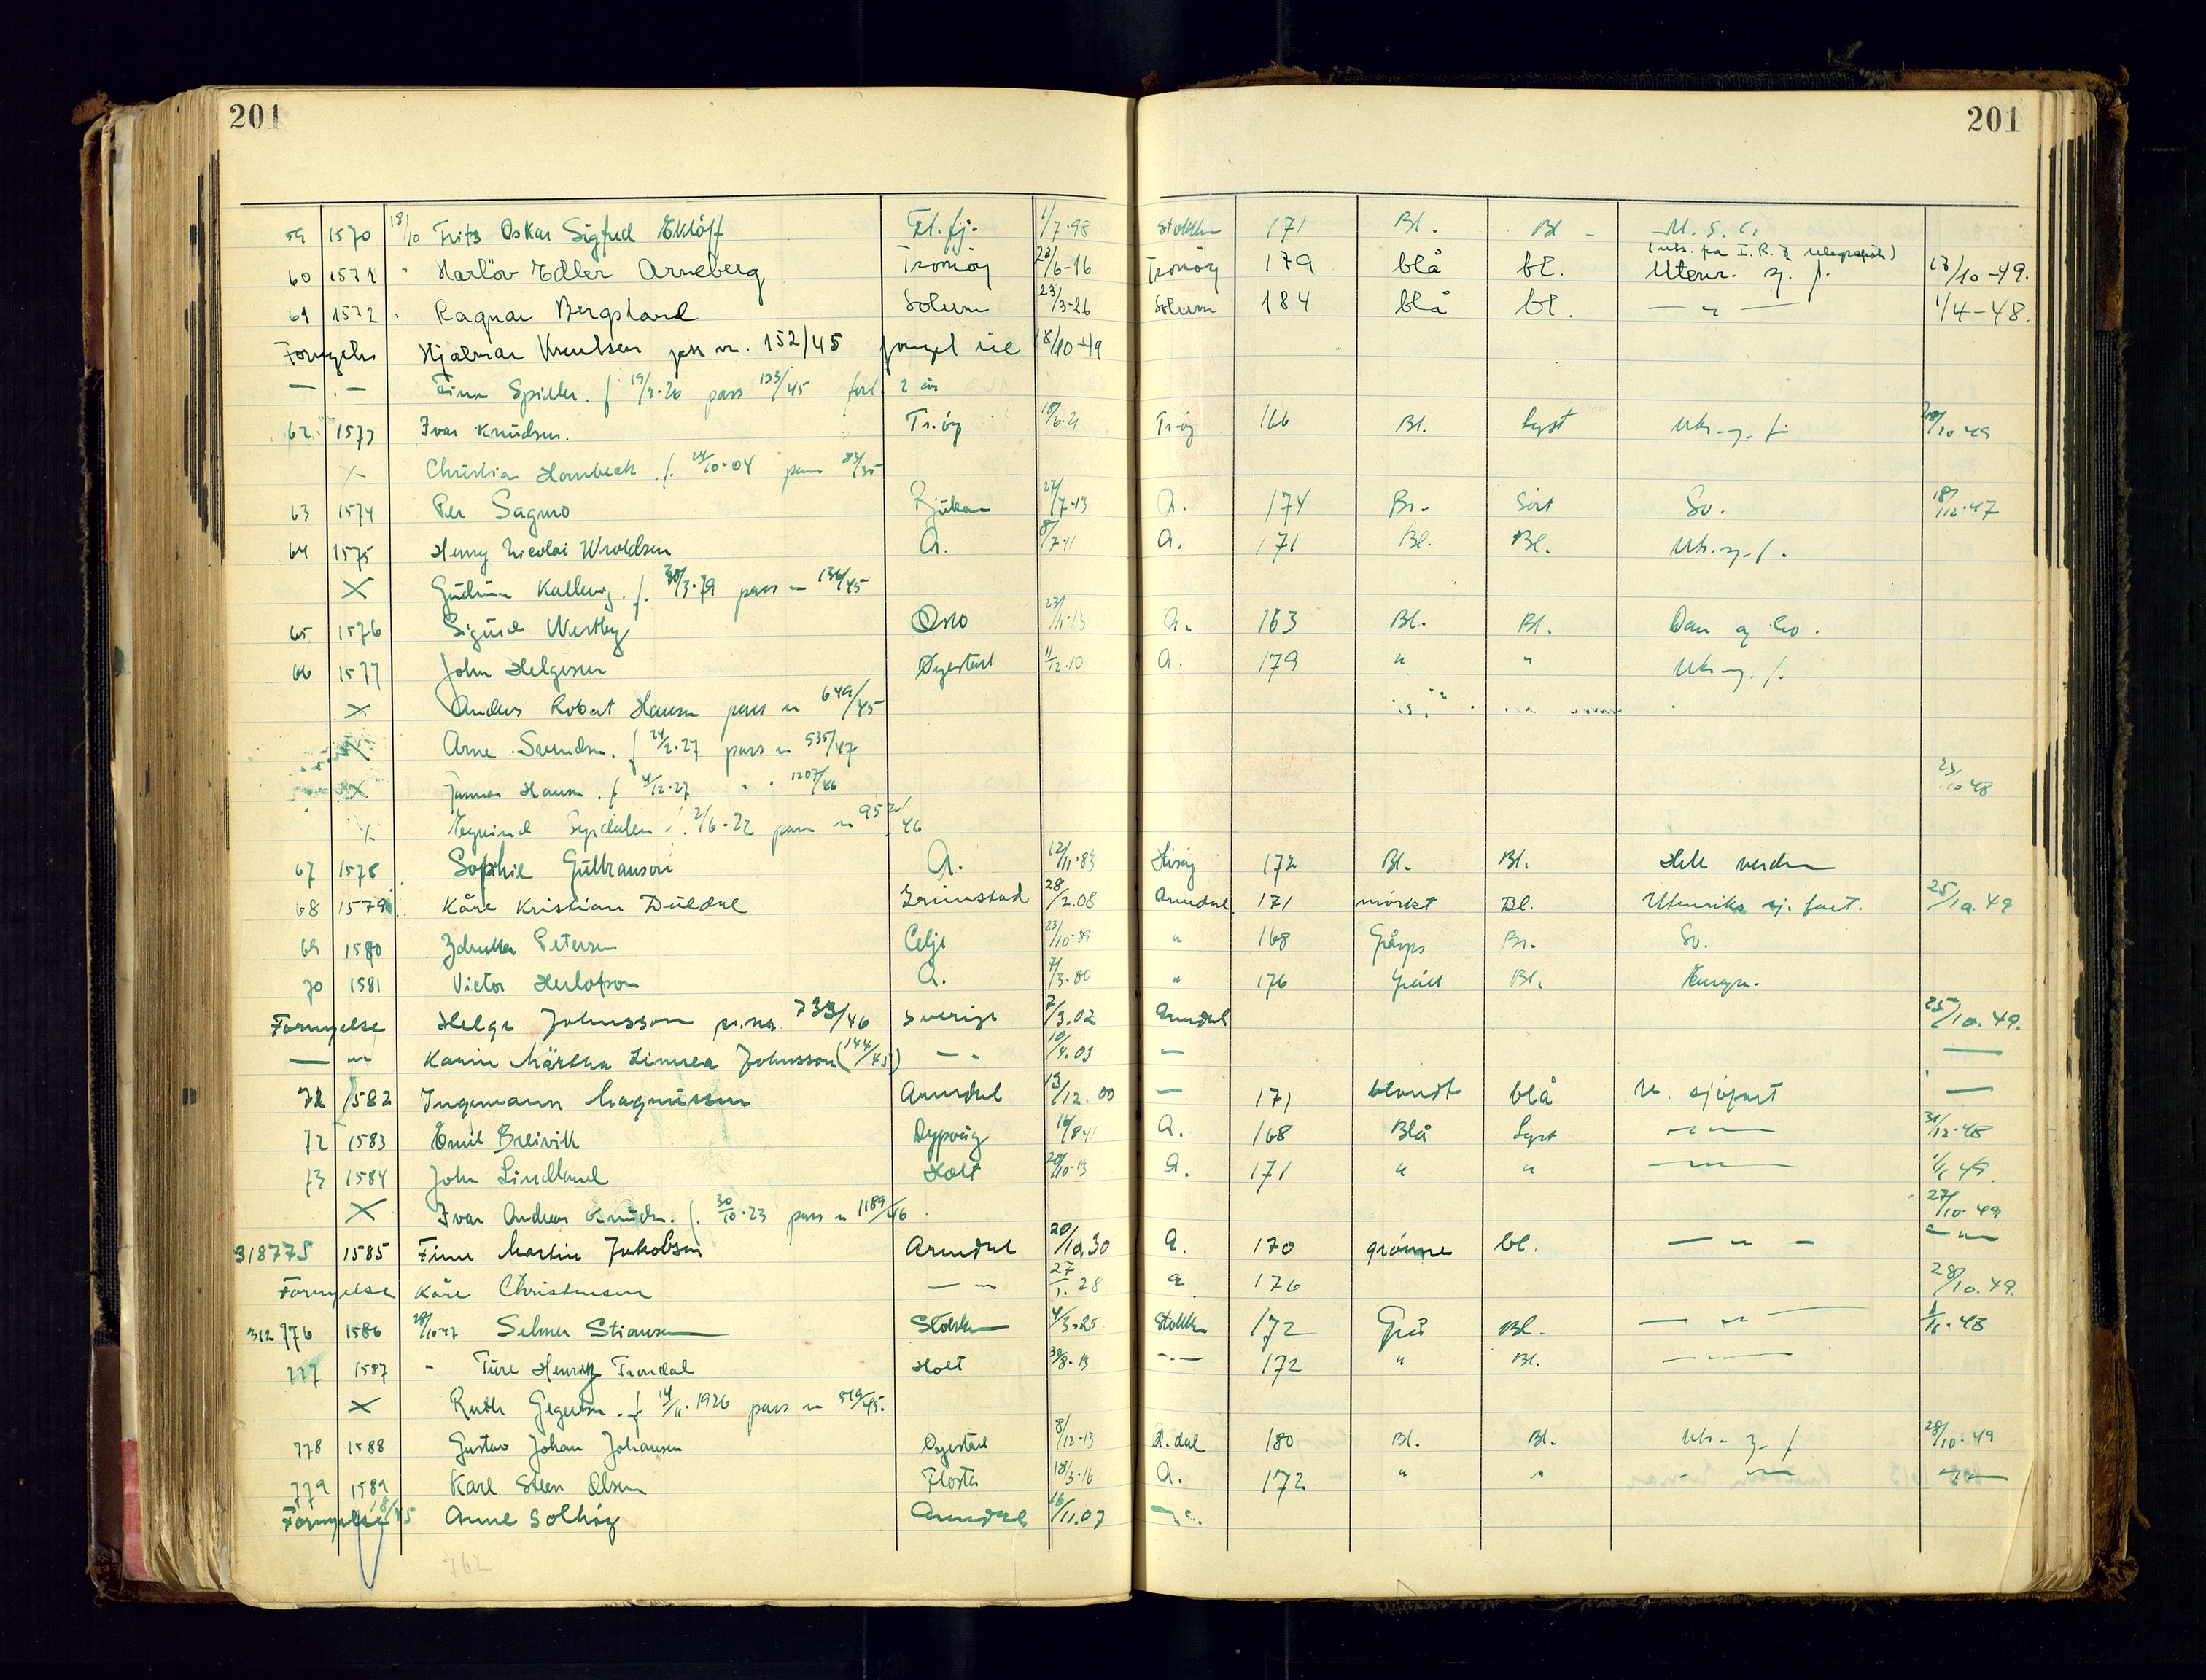 201 201
59 1570 18/10 Frits Oskar Sigfred Eklöff Fl.fj. 1/7-98 Stokken 171 Bl. Bl - U.S.A.
60 1571 " Harlöv Edler Arneberg Tromöy 20/6-16 Tromöy 179 blå bl. Utenr. sj. f. 17/10-49.
61 1572 " Ragnar Bergsland Solum 23/3-26 Solum 184 blå bl. — " — 1/4-48.
Fornyelse Hjalmar Knutsen pass nr. 152/45 18/10-49
— " — Finn f. 19/2-20 pass 133/45 forl. 2 år
62 1573 Ivar Knudsen. Tr.öy 18/6-21 Tr.öy 166 Bl. Lyst Utr. sj. f. 10 49
X Christian Hornbeck f. 24/10-04 pass 83/35
63 1574 Per Sagmo Rjukan 27/7-13 A. 174 Br. Sort Sv. 18/12-47
64 1575 Henry Nicolai Wroldsen A. 8/7-11 A. 171 Bl. Bl. Utr. sj. f.
X Gudrun Kallevig. f. 30/3-79 pass nr 136/45
65 1576 Sigurd Westby Oslo 23/11-13 A. 163 Bl. Bl. Dan og Sv.
66 1577 John Helgesen Öyestad 11/12-10 A. 179 " " Utr. sj. f.
X Anders Robert Hansen pass nr 649/45
X Arne Svendsen. f. 24/2-27 pass nr 535/47
X Gunnar Hansen. f. 4/12-27 " " 1207/46 23/10 48
X Eyvind f. 2/6-22 pass nr 952/46
67 1578 Sophie Gulbranson A. 12/11-83 Hisöy 172 Bl. Bl. Hele verden
68 1579 Kåre Kristian Duedal Grimstad 28/2.08 Arendal 171 mörkt Bl. Utenriks sj. fart. 25/10.49
69 1580 Petersen Celje 23/10-89 " 168 Br. Sv.
70 1581 Victor Herlofson A. 7/3-80 " 176 Grått Bl. Europa.
Fornyelse Helge Johnsson ps.nr. 733/46 Sverige 7/3.02 Arendal 25/10.49.
— " — Karin Märtha Linnea Johnsson (144/45) — " 10/4.03 — —
71 1582 Ingemann Magnussen Arendal 13/12.00 — 171 blondt blå u. sjöfart —
72 1583 Emil Breivik Dypvåg 16/8-11 A. 168 Blå Lyst — " — 31/12-48
73 1584 John Lindland Holt 20/10-13 A. 171 " " — " — 1/11 49.
X Ivar Andreas Knudsen. f. 30/10-23 pass nr 1189/46 27/10-49
318775 1585 Finn Martin Jakobsen Arendal 20/10.30 A. 170 grönne bl. — " — — " —
Fornyelse Kåre Christensen — " — 27/1.28 a 176 28/10.49.
312776 1586 28/10-47 Selmer Stiansen Stokken 4/3-25 Stokken 172 Grå Bl. — " — 1/11-48
777 1587 " Ture Henrik Trondal Holt 30/8-13 — " — 172 " Bl. — " —
X Ruth f. 14/11-1926 pass nr 519/45.
778 1588 Gustav Johan Johansen Öyestad 8/12-13 A.dal 180 Bl. Bl. Utr. sj. f 28/10-49
779 1589 Karl Steen Olsen Flosta 18/3-16 A. 172 " " — " — — " —
Fornyelse 18/45 Anne Solhöy Arendal 16/11.07 — " —
762